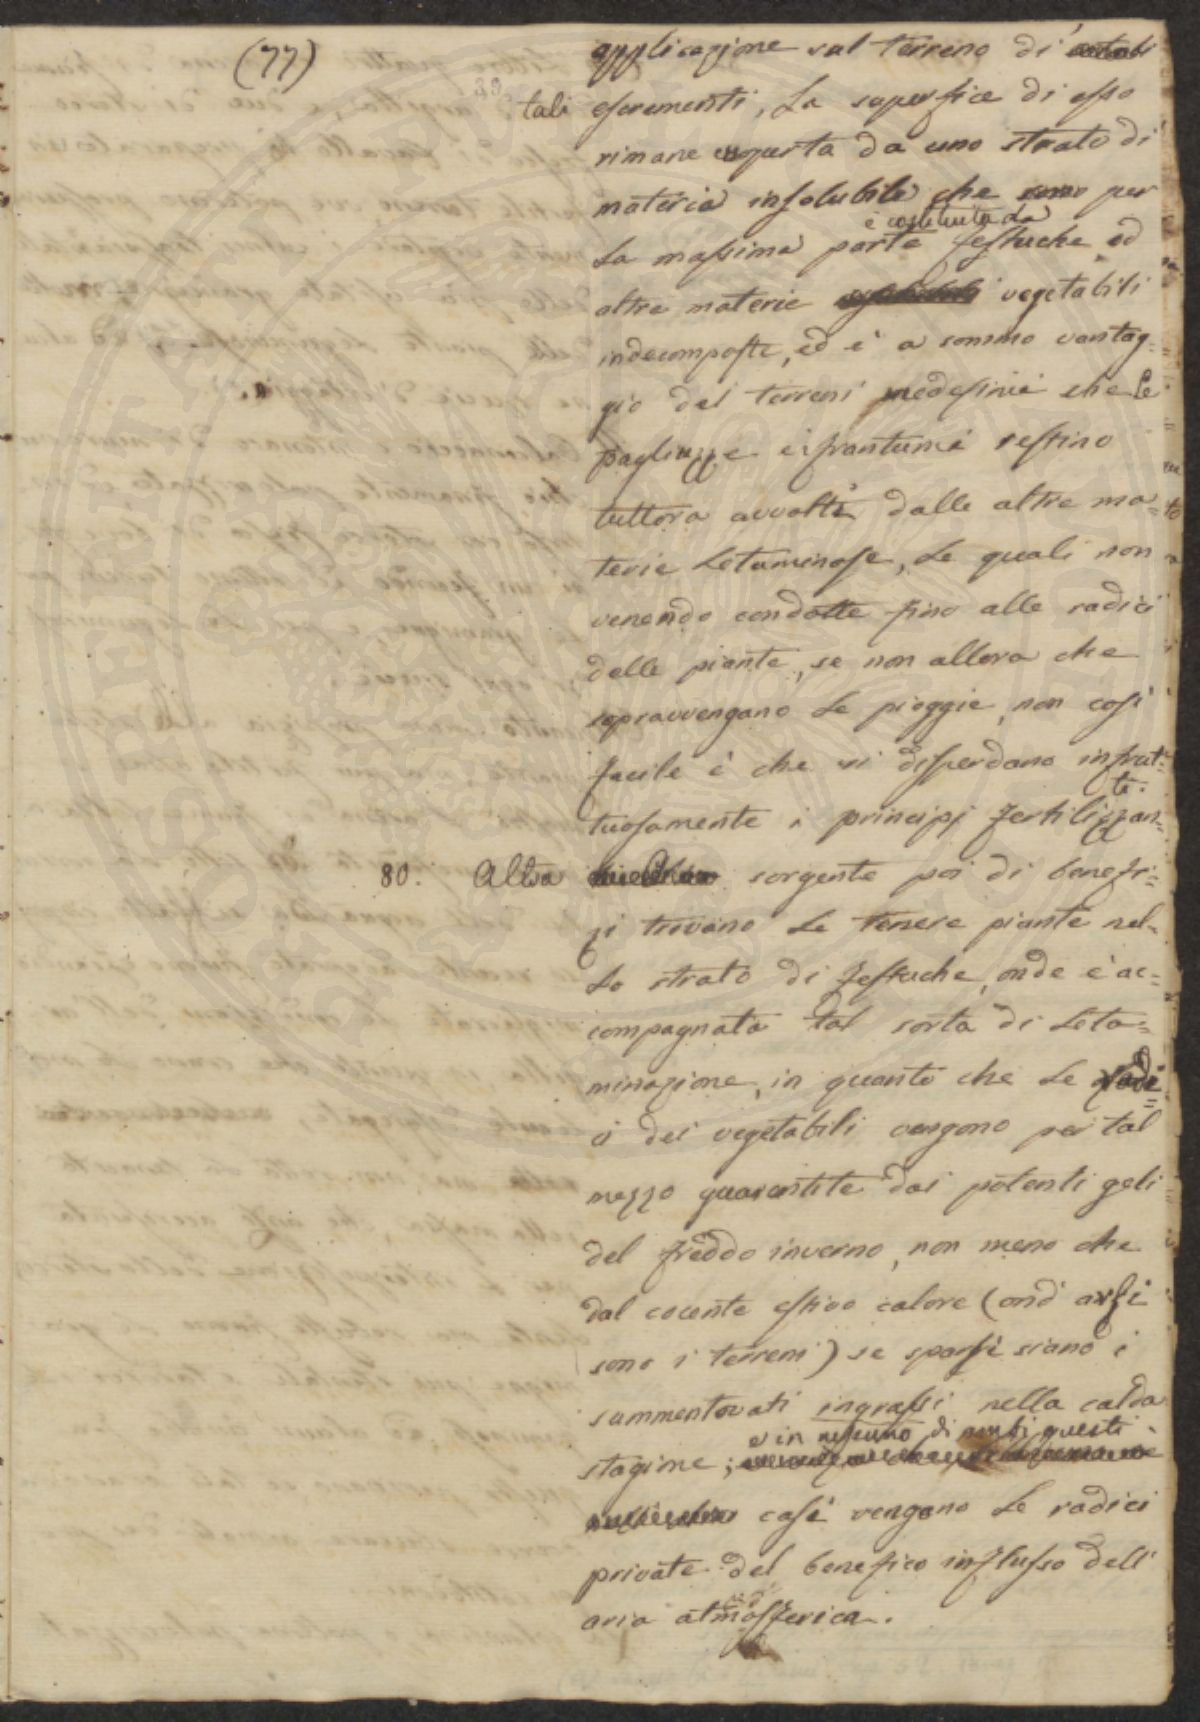 (77)
applicazione sul terreno di
tali escrementi, La superfice di esso
rimane coperta da uno strato di
materia insolubile che per
è costituita da
La massima parte festuche ed
altre materie vegetabili
indecomposte, ed è a sommo vantag=
gio dei terreni medesimi che Le
pagliuzze e i frantumi restino
tuttora avvolti dalle altre ma=
terie Letaminose, Le quali non
venendo condotte fino alle radici
delle piante, se non allora che
sopravvengano Le pioggie, non così
facile è che si disperdano infrut=
tuosamente i principj fertilizzan=
ti.
80. Altra sorgente poi di benefi=
zi trovano Le tenere piante nel=
Lo strato di festuche, onde è ac=
compagnata tal sorta di Leta=
minazione, in quanto che Le radi=
ci dei vegetabili vengono per tal
mezzo guarentite dai potenti geli
del freddo inverno, non meno che
dal cocente estivo calore (ond' arsi
sono i terreni) se sparsi siano i
summentovati ingrassi nella calda
e in nessuno di ambi questi
stagione;
casi vengano Le radici
private del benefico influsso dell'
aria atmosferica.